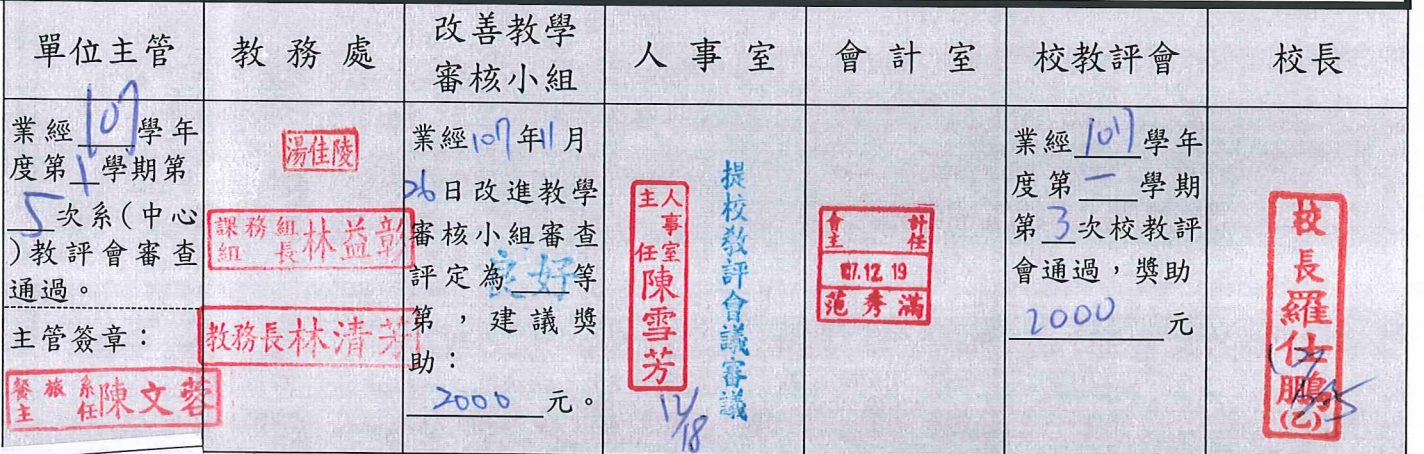 單位主管
教務處
改善教學
審核小組
人事室
會計室
校教評會
校長
業經107學年
度第1學期第
5次系(中心
)教評會審查
通過。
主管簽章：
餐旅系
主任
陳文蓉
湯佳陵
課務組
組長
林益彰
教務長林清芳
業經107年11月
26日改進教學
審核小組審查
評定為良好等
第，建議獎
助：
2000元。
人事室
主任
陳雪芳
12/18
提校教評會議審議
會計
主任
107.12.19
范秀滿
業經107學年
度第一學期
第3次校教評
會通過，獎助
2000元
校長羅仕鵬
(乙)